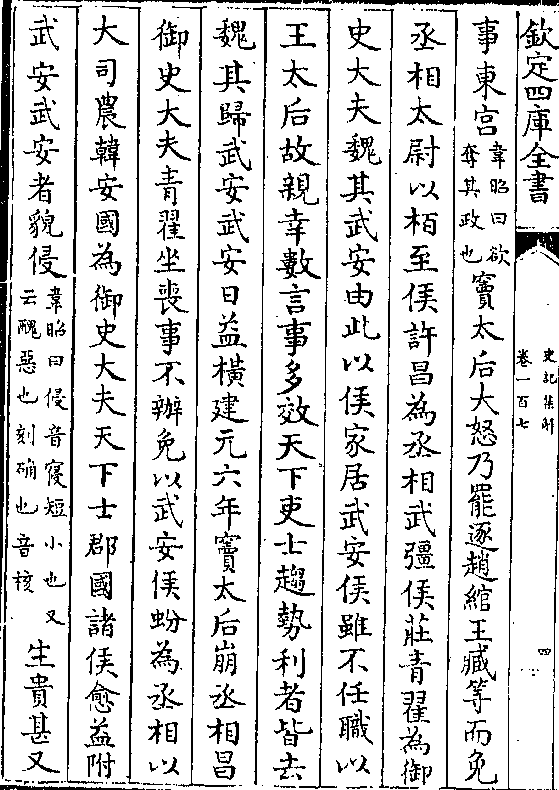 欽定四庫全書
史記集解
卷一百七
四
事東宮韋昭曰欲奪其政也竇太后大怒乃罷逐趙綰王臧等而免
丞相太尉以栢至侯許昌為丞相武彊侯莊青翟為御
史大夫魏其武安由此以侯家居武安侯雖不任職以
王太后故親幸數言事多效天下吏士趨勢利者皆去
魏其歸武安武安日益橫建元六年竇太后崩丞相昌
御史大夫青翟坐喪事不辦免以武安侯蚡為丞相以
大司農韓安國為御史大夫天下士郡國諸侯愈益附
武安武安者貌侵韋昭曰侵音寢短小也又云醜惡也刻确也音核生貴甚又